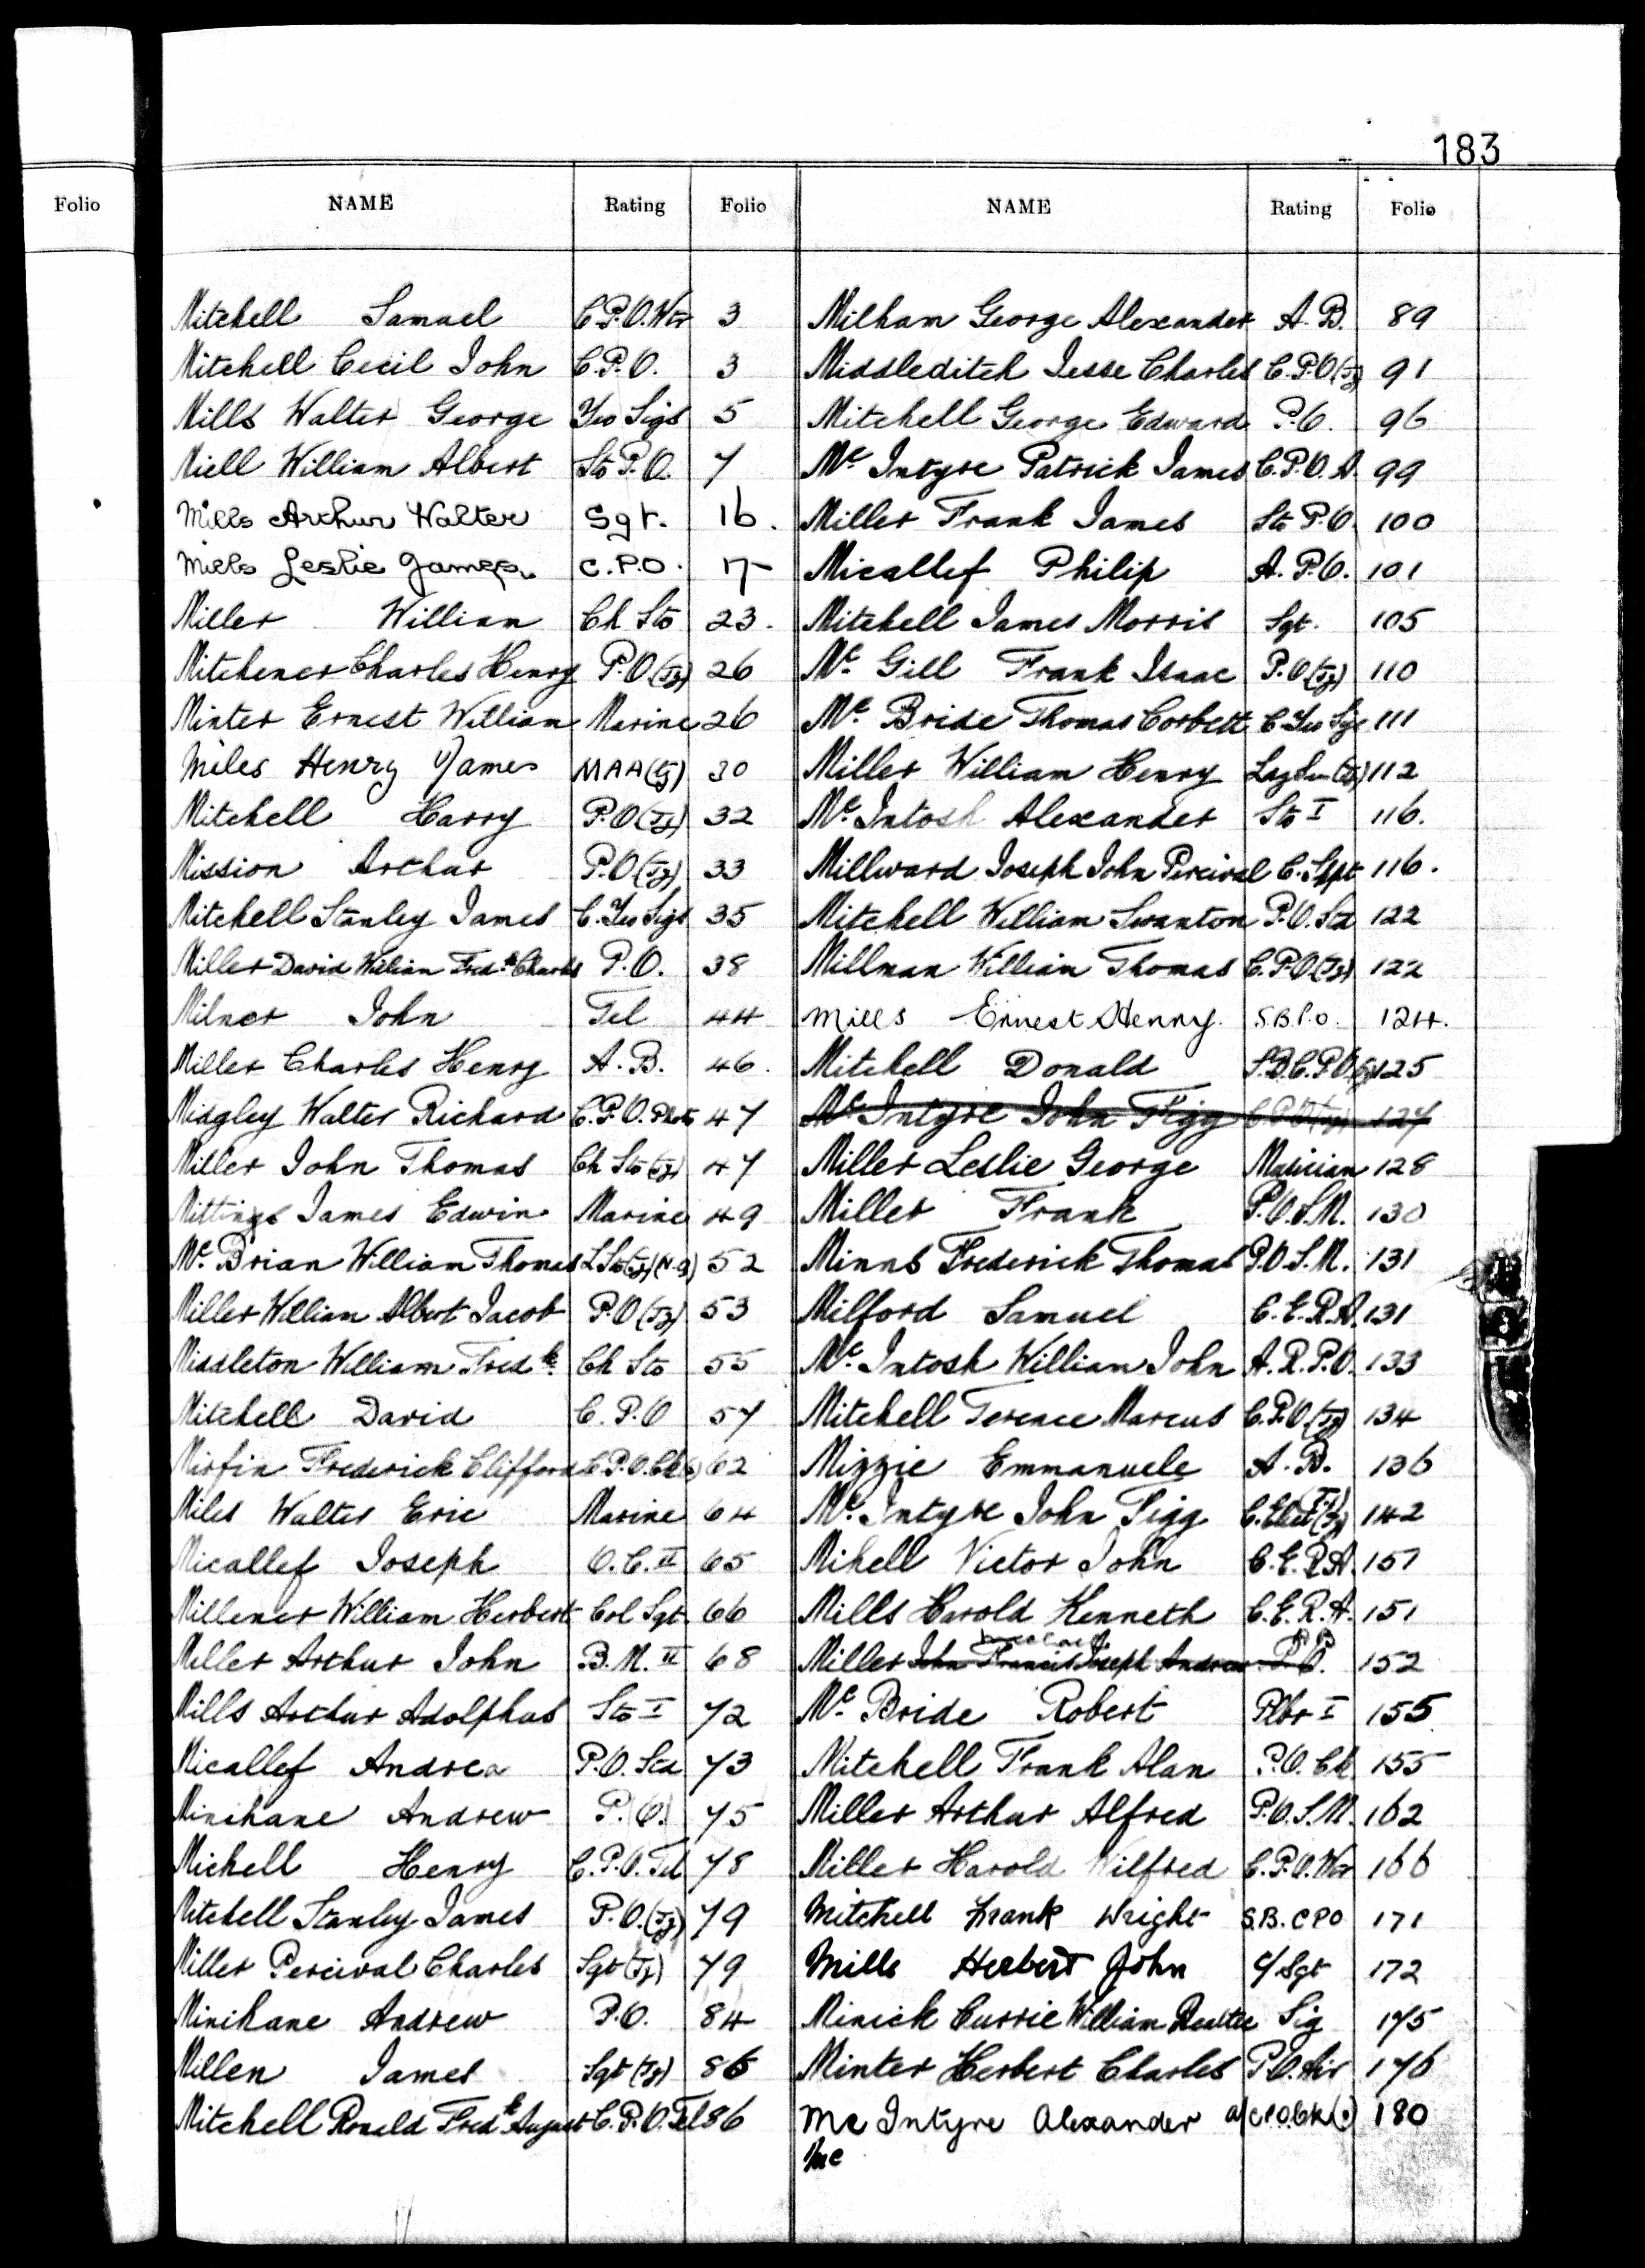 183
Folio
NAME Rating Folio
NAME Rating Folio
Mitchell Samuel C.P.O. Wtr 3
Mitchell Cecil John C.P.O. 3
Mills Walter George Yeo Sigs 5
Miell William Albert Sto P.O. 7
Mills Arthur Walter Sgt. 16.
Mills Leslie James. C.P.O. 17
Miller William Ch Sto 23.
Mitchener Charles Henry P.O (Tz) 26
Minter Ernest William Marine 26
Miles Henry James MAA (Tz) 30
Mitchell Harry P.O (Tz) 32
Mission Arthur P.O (Tz) 33
Mitchell Stanley James C. Yeo Sigs 35
Miller David William Fredk Charles P.O. 38
Milner John Tel 44
Miller Charles Henry A.B. 46.
Midgley Walter Richard C.P.O. Phot 47
Miller John Thomas Ch Sto (Tz) 47
Mittings James Edwin Marine 49
Mc Brian William Thomas L.Sto (Tz) (N.S) 52
Miller William Albert Jacob P.O (Tz) 53
Middleton William Fredk Ch Sto 55
Mitchell David C.P.O 57
Mirfin Frederick Clifford C.P.O. Ck 62
Miles Walter Eric Marine 64
Micallef Joseph O.C. II 65
Millener William Herbert Col Sgt 66
Miller Arthur John B.M. II 68
Mills Arthur Adolphus Sto I 72
Micallef Andrea P.O. Std 73
Minihane Andrew P.O. 75
Michell Henry C.P.O. Tel 78
Mitchell Stanley James P.O. (Tz) 79
Miller Percival Charles Sgt (Tz) 79
Minihane Andrew P.O. 84
Millen James Sgt (Tz) 86
Mitchell Ronald Fredk August C.P.O. Tel 86
Milham George Alexander A.B. 89
Middleditch Jesse Charles C.P.O (Tz) 91
Mitchell George Edward P.O. 96
Mc Intyre Patrick James C.P.O.A. 99
Miller Frank James Sto P.O. 100
Micallef Philip A.P.O. 101
Mitchell James Morris Sgt. 105
Mc Gill Frank Isaac P.O (Tz) 110
Mc Bride Thomas Corbett C. Yeo Sigs 111
Miller William Henry Ldg Sea (Tz) 112
Mc Intosh Alexander Sto I 116.
Millward Joseph John Percival C. Shpt 116.
Mitchell William Swanton P.O. Std 122
Millman William Thomas C.P.O. (Tz) 122
Mills Ernest Henry. S.B.P.O. 124.
Mitchell Donald S.B.C.P.O. 125
Mc Intyre John Figg 127
Miller Leslie George Musician 128
Miller Frank P.O.S.M. 130
Minns Frederick Thomas P.O.S.M. 131
Milford Samuel C.E.R.A. 131
Mc Intosh William John A.R.P.O. 133
Mitchell Terence Marcus C.P.O (Tz) 134
Mizzie Emmanuele A.B. 136
Mc Intyre John Figg C. Elect (Tz) 142
Mihell Victor John C.E.R.A. 151
Mills Harold Kenneth C.E.R.A. 151
Miller John Francis Joseph Andrew P.O. 152
Mc Bride Robert Plbr I 155
Mitchell Frank Alan P.O. Ck 155
Miller Arthur Alfred P.O.S.M. 162
Miller Harold Wilfred C.P.O. Wtr 166
Mitchell Frank Wright S.B. CPO 171
Mills Herbert John C/Sgt 172
Minick Currie William Sig 175
Minter Herbert Charles P.O. Air 176
Mc Intyre Alexander a/c P.O. Ck (S) 180
Mc